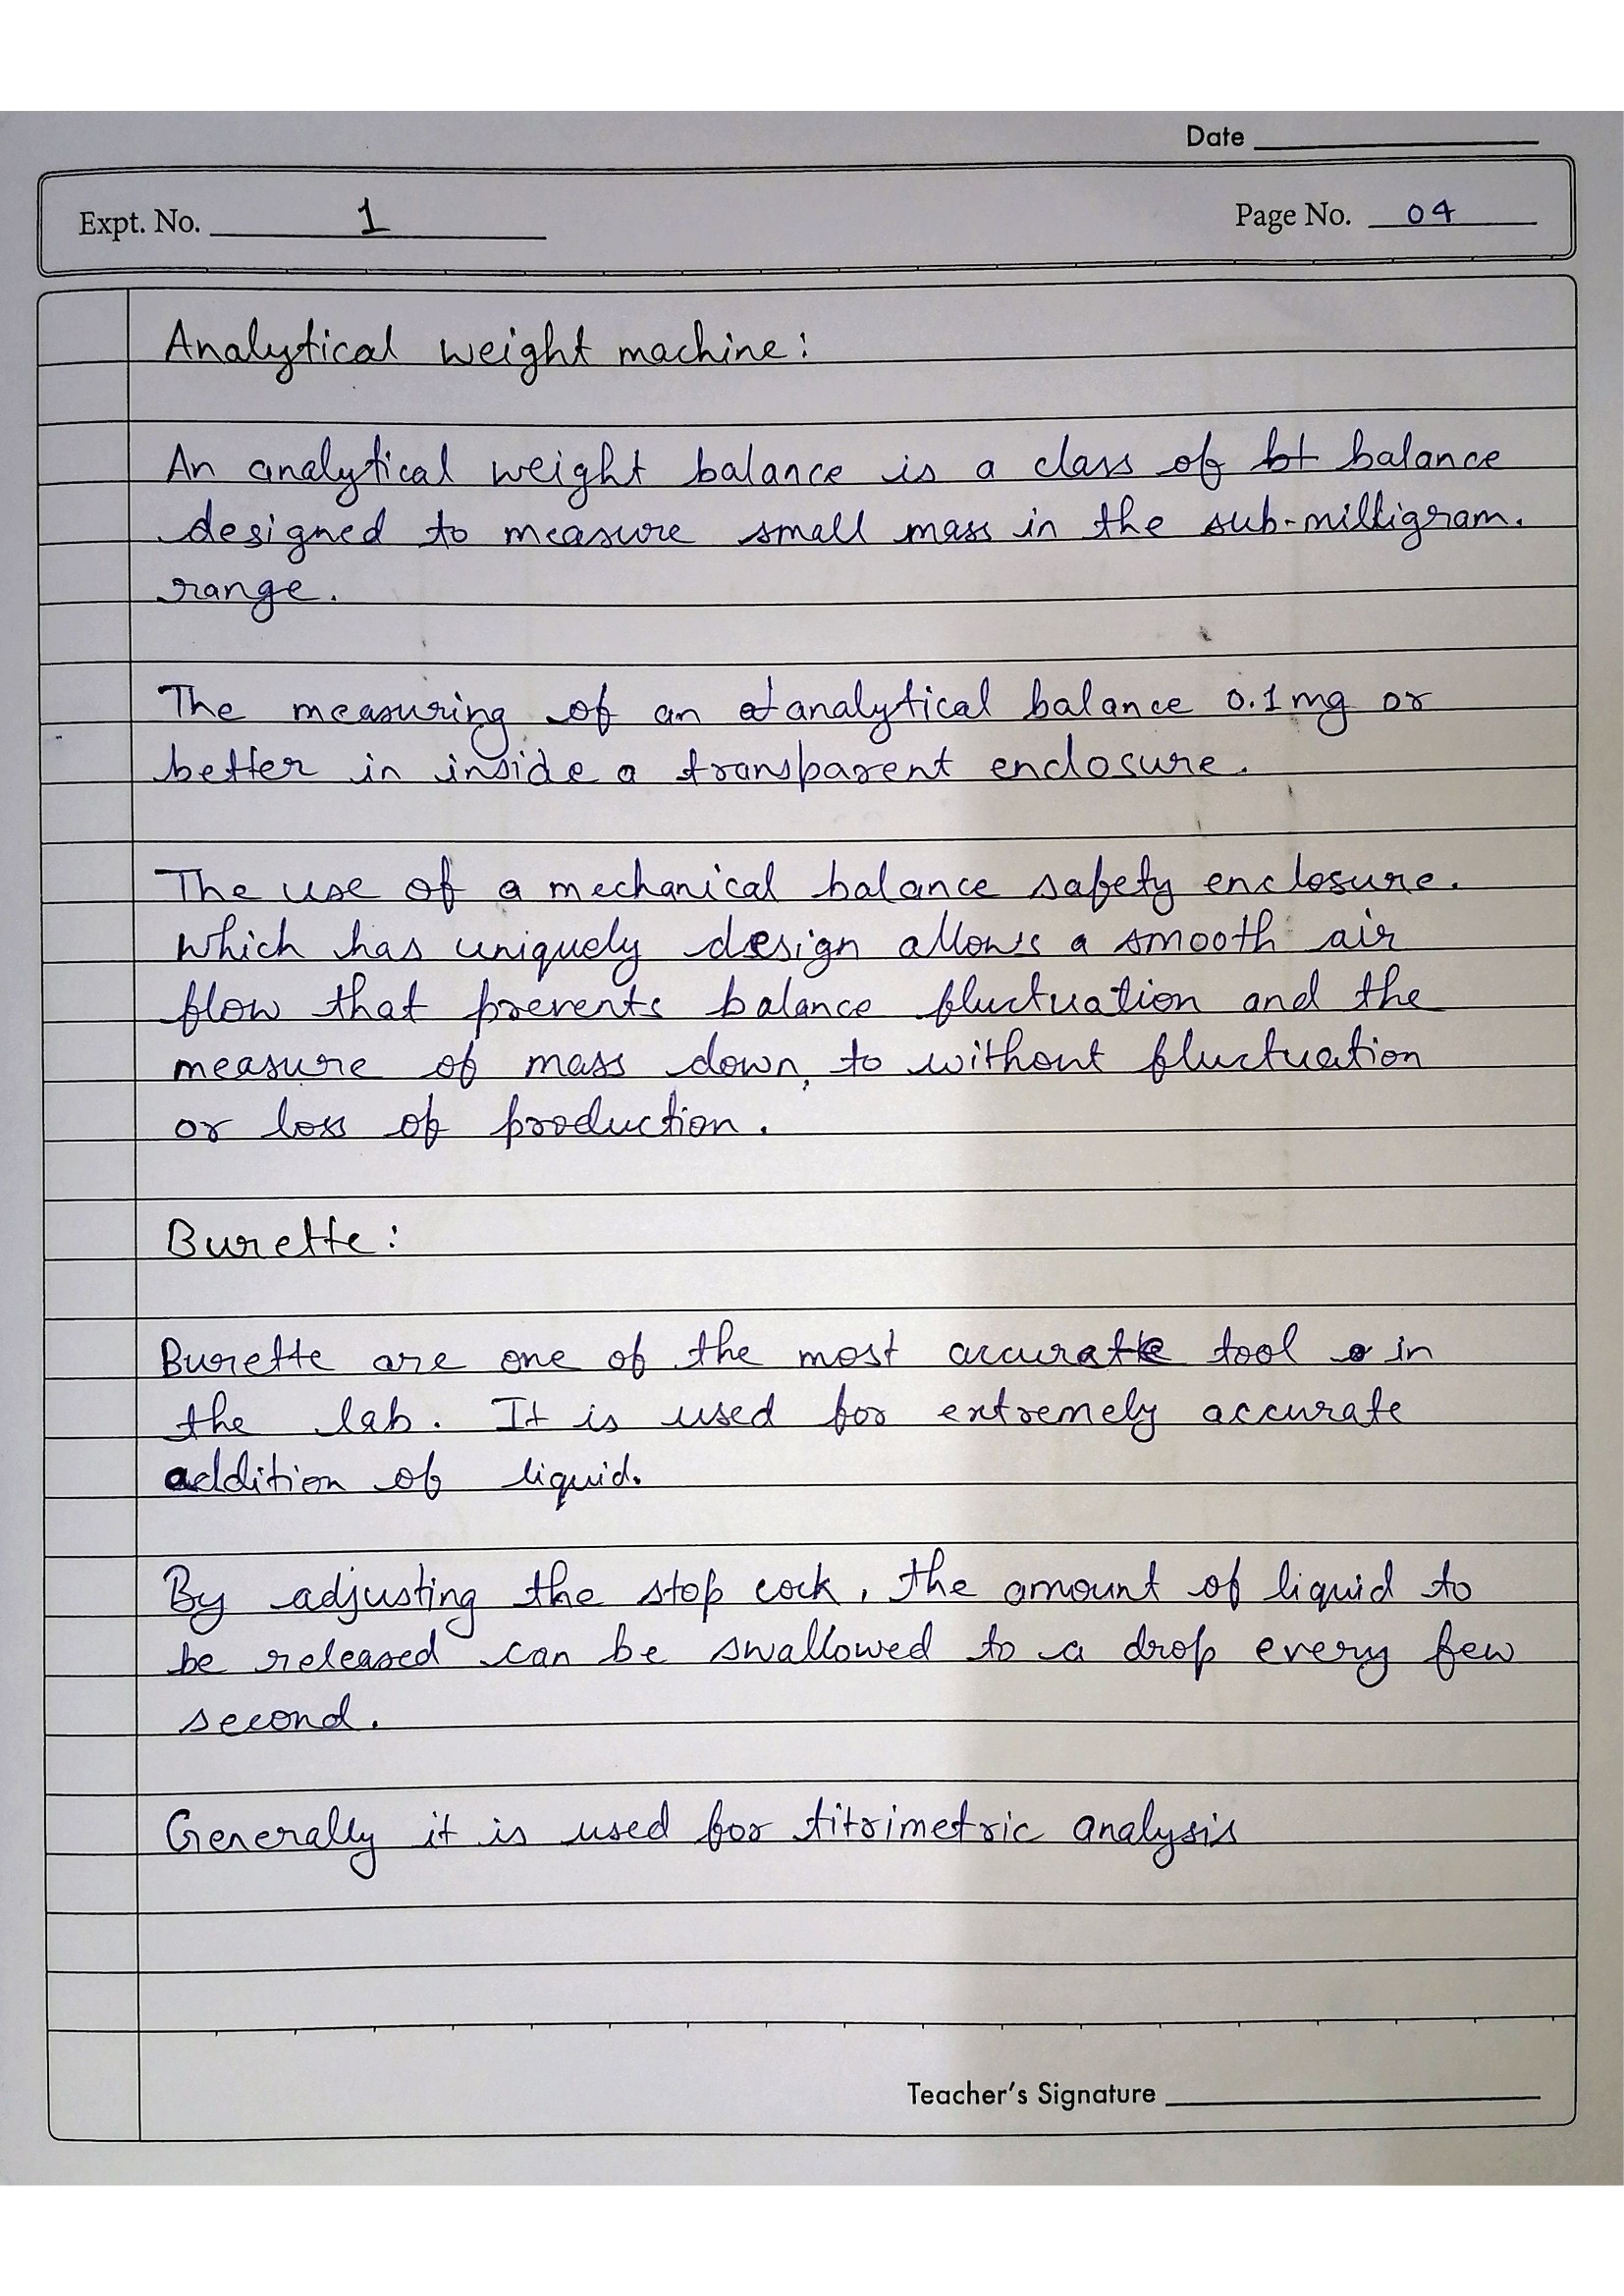 Date
Expt. No. 1
Page No. 04
Analytical weight machine:
An analytical weight balance is a class of bt balance
designed to measure small mass in the sub-milligram.
range.
The measuring of an at analytical balance 0.1mg or
better in inside a transparent enclosure.
The use of a mechanical balance safety enclosure.
which has uniquely design allows a smooth air
flow that prevents balance fluctuation and the
measure of mass down, to without fluctuation
or loss of production.
Burette:
Burette are one of the most accurate tool in
the lab. It is used for extremely accurate
addition of liquid.
By adjusting the stop cock, the amount of liquid to
be released can be swallowed to a drop every few
second.
Generally it is used for titrimetric analysis
Teacher's Signature